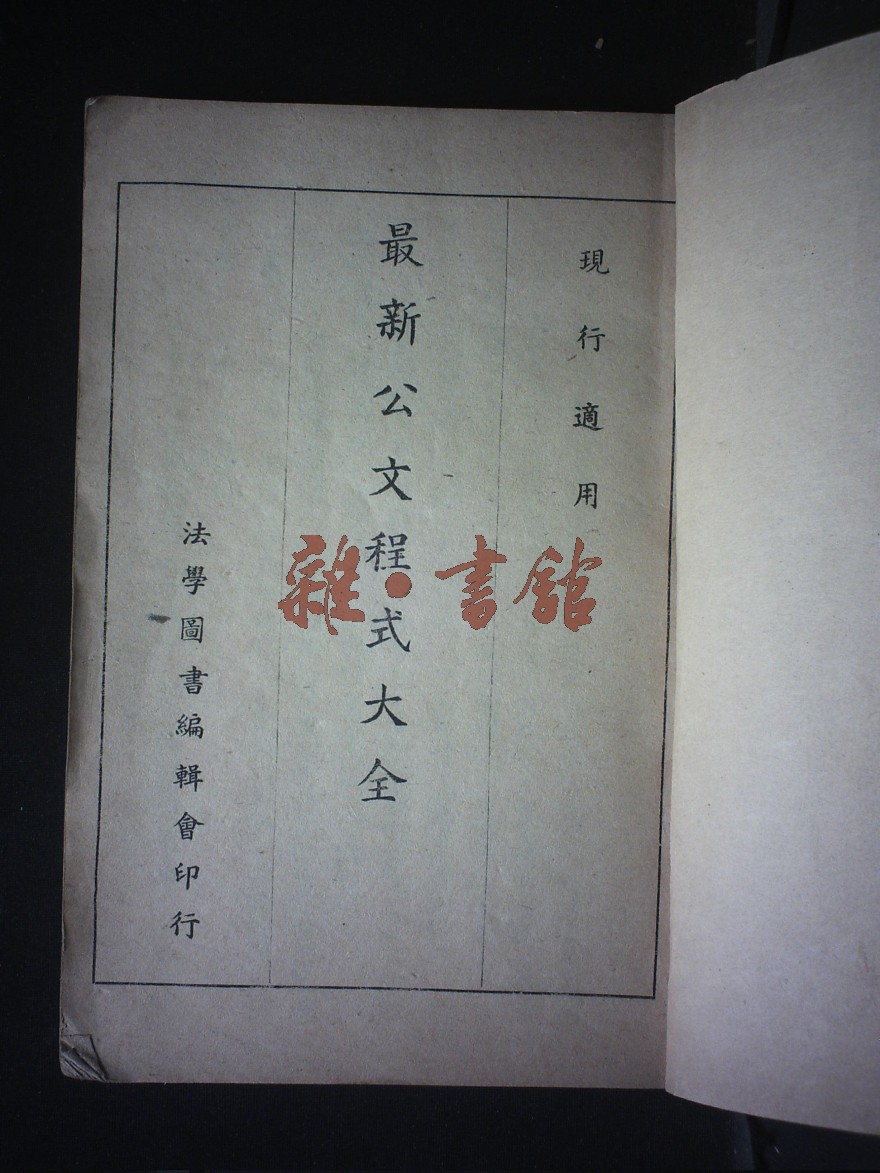 現行適用
最新公文程式大全
法學圖書編輯會印行
雜·書館